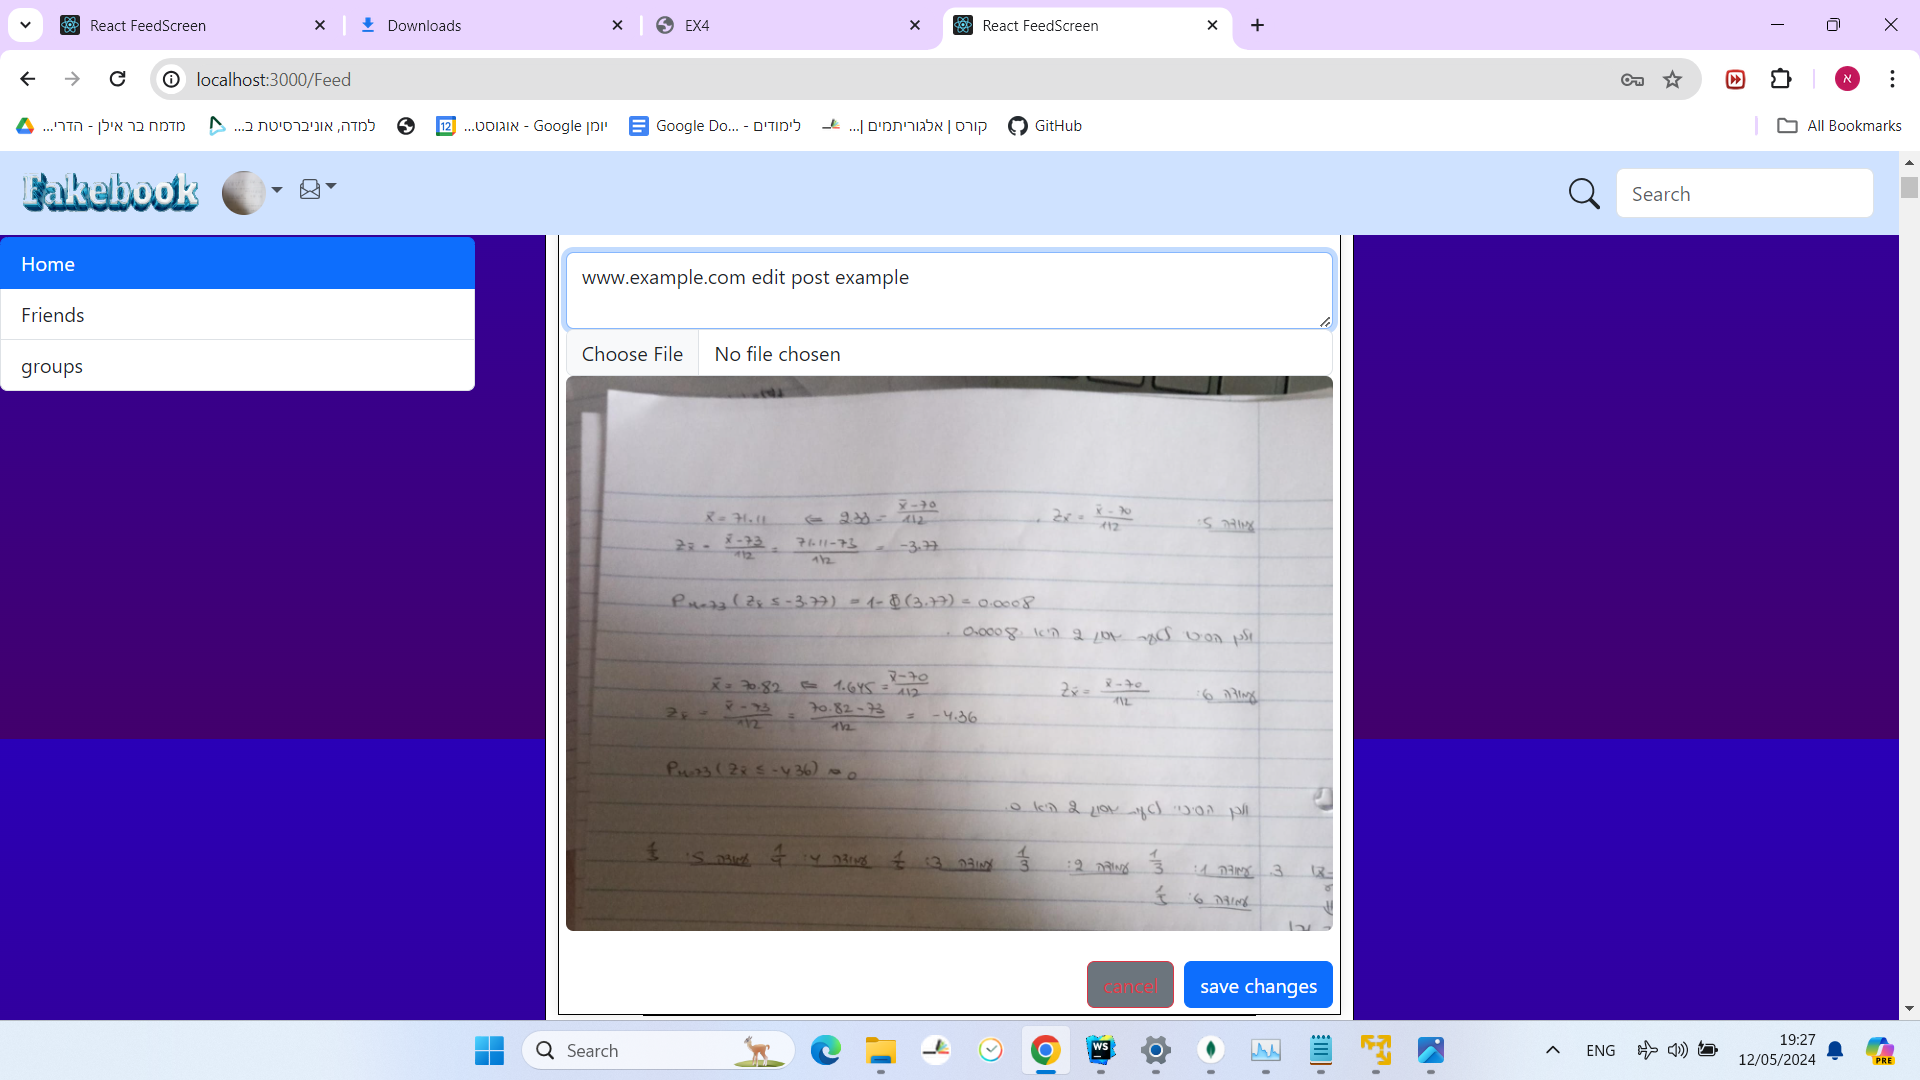 React FeedScreen
Downloads
EX4
React FeedScreen
localhost:3000/Feed
מדמח בר אילן - הדרי...
למדה, אוניברסיטת ב...
יומן Google - אוגוסט...
לימודים - Google Do...
קורס | אלגוריתמים |...
GitHub
All Bookmarks
Fakebook
Search
Home
Friends
groups
www.example.com edit post example
Choose File
No file chosen
x̄ = 71.11 ⇐ 2.33 = x̄-70 / 1/2 Zx̄ = x̄-70 / 1/2 עמודה 5:
Zx̄ = x̄-73 / 1/2 = 71.11-73 / 1/2 = -3.77
Pμ=73 (Zx̄ ≤ -3.77) = 1-Φ(3.77) = 0.0008
ולכן הסיכוי לטעות מסוג 2 היא 0.0008.
x̄ = 70.82 ⇐ 1.645 = x̄-70 / 1/2 Zx̄ = x̄-70 / 1/2 עמודה 6:
Zx̄ = x̄-73 / 1/2 = 70.82-73 / 1/2 = -4.36
Pμ=73 (Zx̄ ≤ -4.36) ≈ 0
ולכן הסיכוי לטעות מסוג 2 היא 0.
3. עמודה 1: 1/3 עמודה 2: 1/3 עמודה 3: עמודה 4: עמודה 5:
עמודה 6:
cancel
save changes
Search
ENG
19:27
12/05/2024